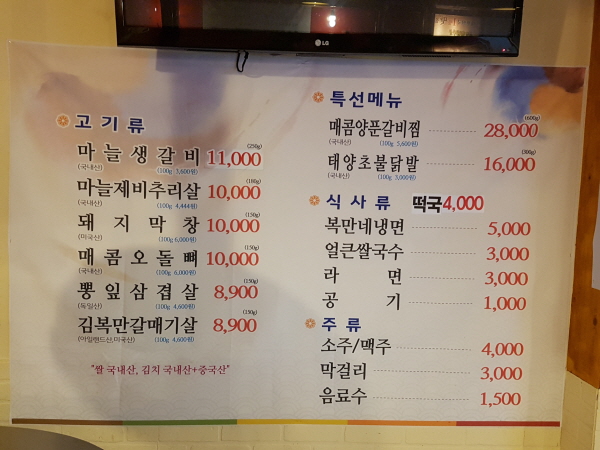 LG
고기류
마늘생갈비 11,000 (250g)
(국내산) (100g 3,600원)
마늘제비추리살 10,000 (180g)
(국내산) (100g 4,444원)
돼지막창 10,000 (150g)
(미국산) (100g 6,000원)
매콤오돌뼈 10,000 (150g)
(국내산) (100g 6,000원)
뽕잎삼겹살 8,900 (150g)
(독일산) (100g 4,600원)
김복만갈매기살 8,900 (150g)
(아일랜드산,미국산) (100g 4,600원)
"쌀 국내산, 김치 국내산+중국산"
특선메뉴
매콤양푼갈비찜 28,000 (600g)
(국내산) (100g 5,600원)
태양초불닭발 16,000 (300g)
(국내산) (100g 3,000원)
식사류 떡국4,000
복만네냉면 5,000
얼큰쌀국수 3,000
라면 3,000
공기 1,000
주류
소주/맥주 4,000
막걸리 3,000
음료수 1,500